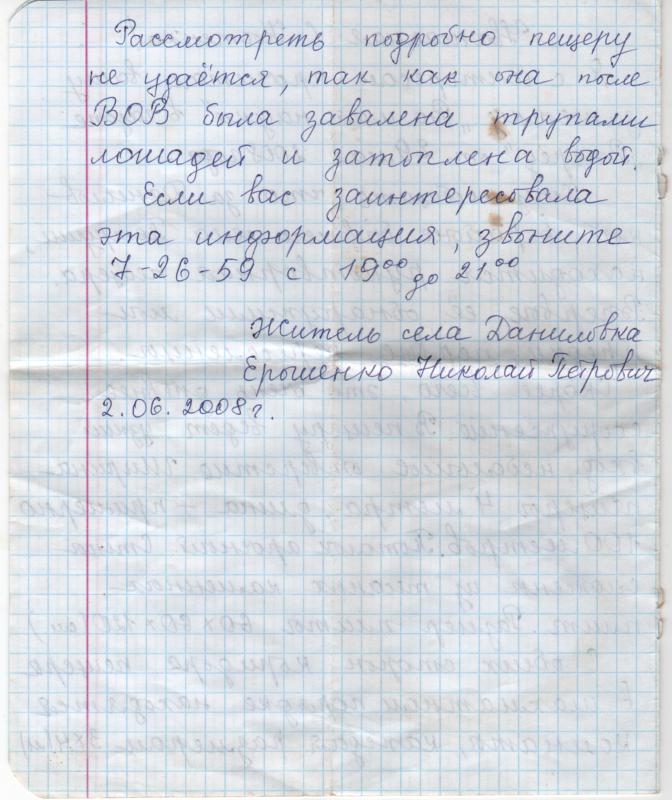 Рассмотреть подробно пещеру
не удаётся, так как она после
ВОВ была завалена трупами
лошадей и затоплена водой.
Если вас заинтересовала
эта информация, звоните
7-26-59 с 19⁰⁰ до 21⁰⁰
Житель села Даниловка
Ерышенко Николай Петрович
2.06.2008 г.